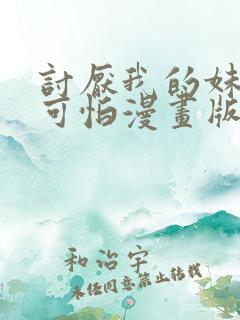 討厭我的妹
可怕漫畫版
和治宇
未任同意禁止转載